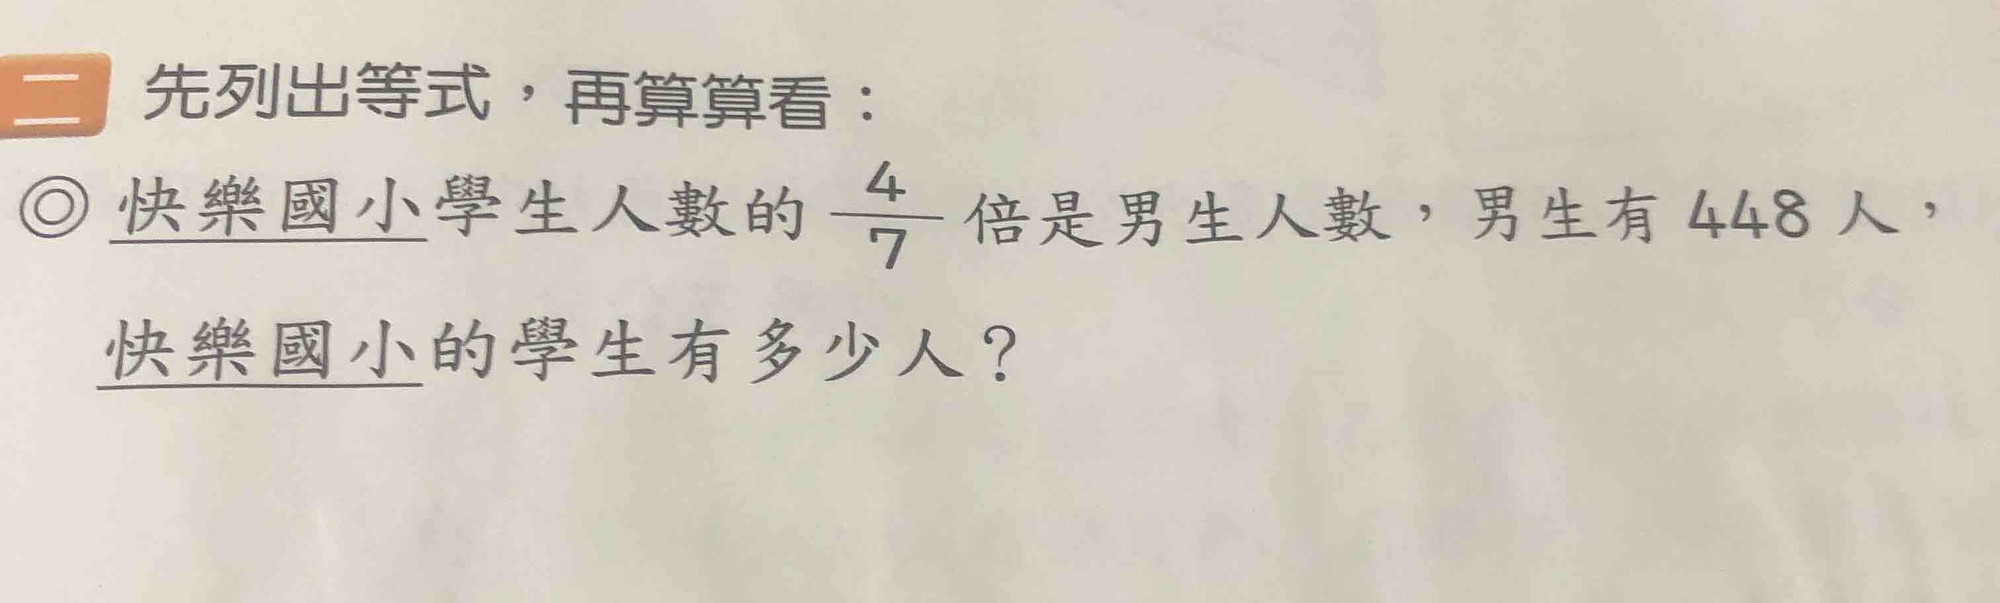 二 先列出等式，再算算看：
◎ 快樂國小學生人數的 4/7 倍是男生人數，男生有 448 人，
快樂國小的學生有多少人？